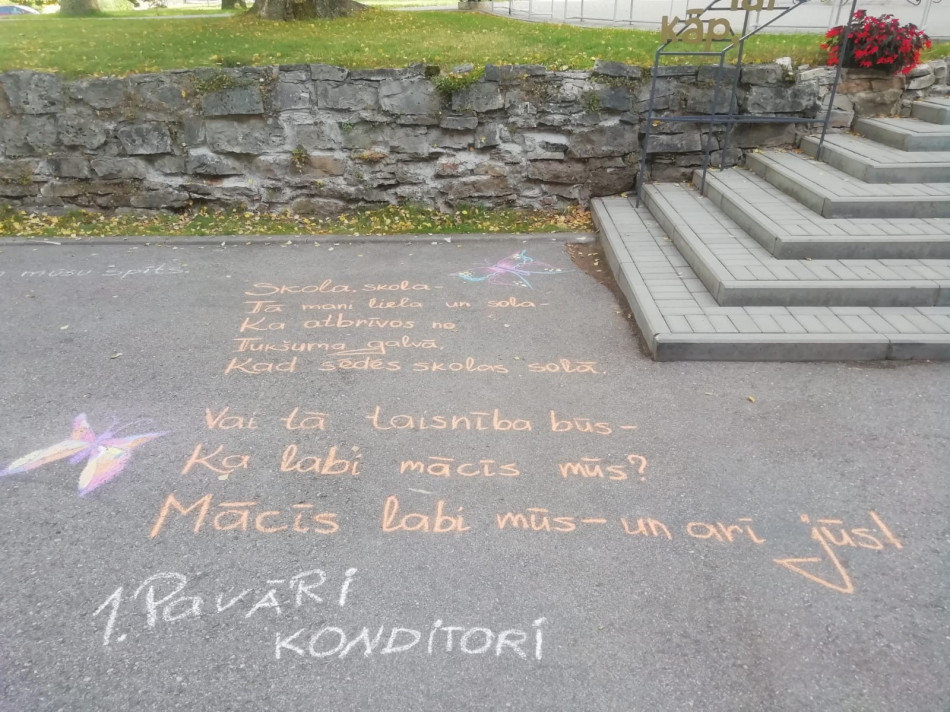 kāp
mūsu šprits.
Skola, skola –
Tā mani liela un sola –
Ka atbrīvos no
Tukšuma galvā,
Kad sēdēs skolas solā.
Vai tā taisnība būs –
Ka labi mācīs mūs?
Mācīs labi mūs – un arī jūs!
1. Pavāri
KONDITORI